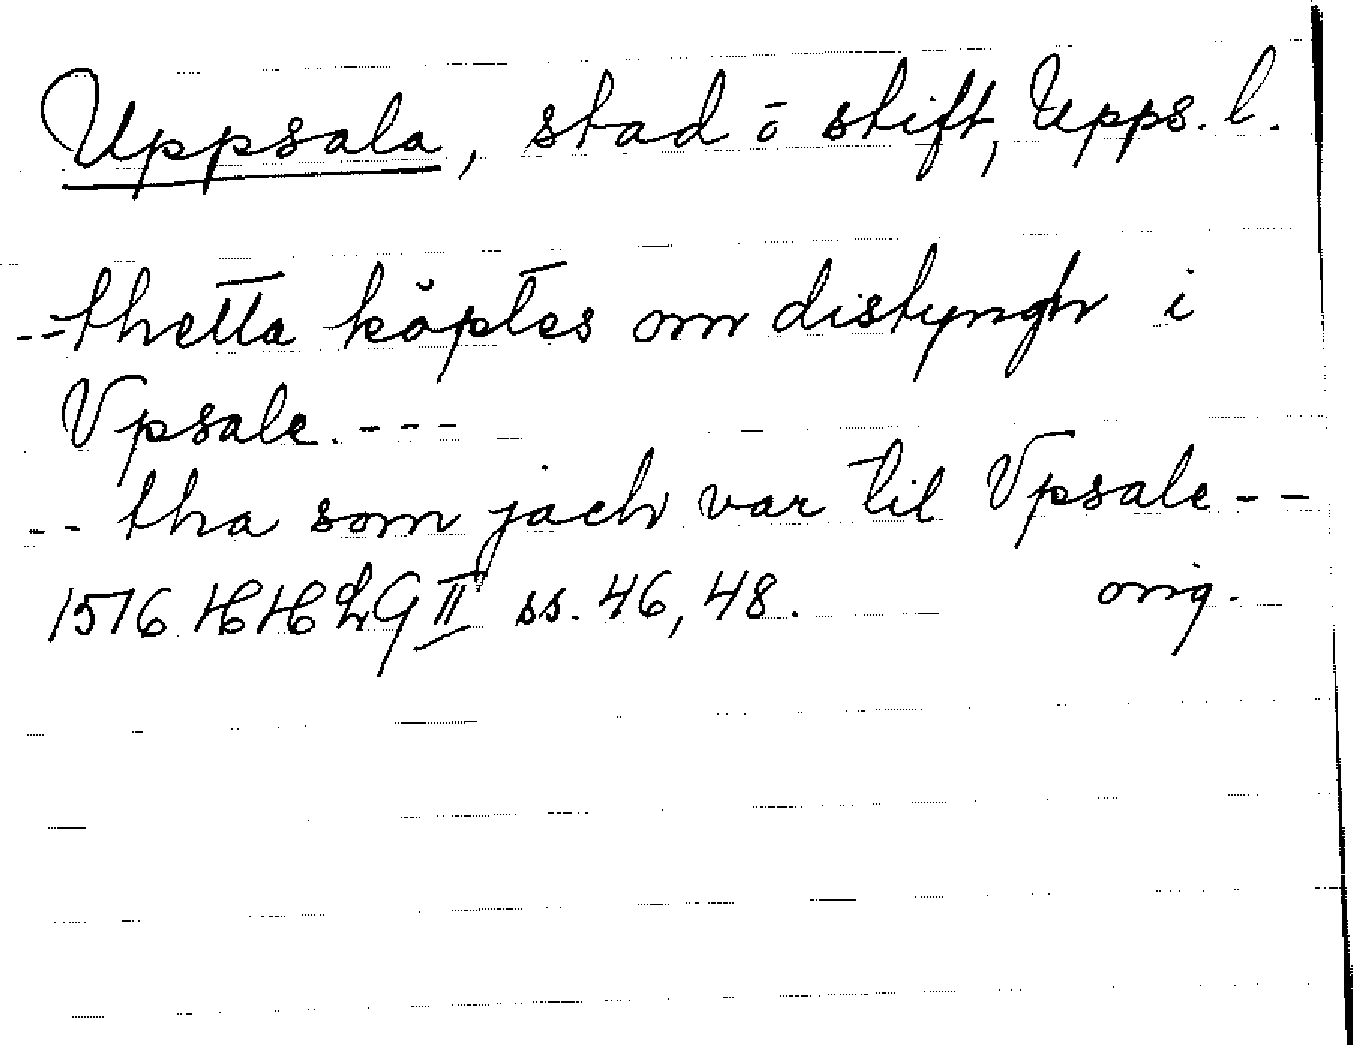 Uppsala, stad o stift, Upps. l.
-- thetta köptes om distyngh i
Vpsale. ---
-- tha som jach var til Vpsale --
1576 HHLG II ss. 46, 48. orig.